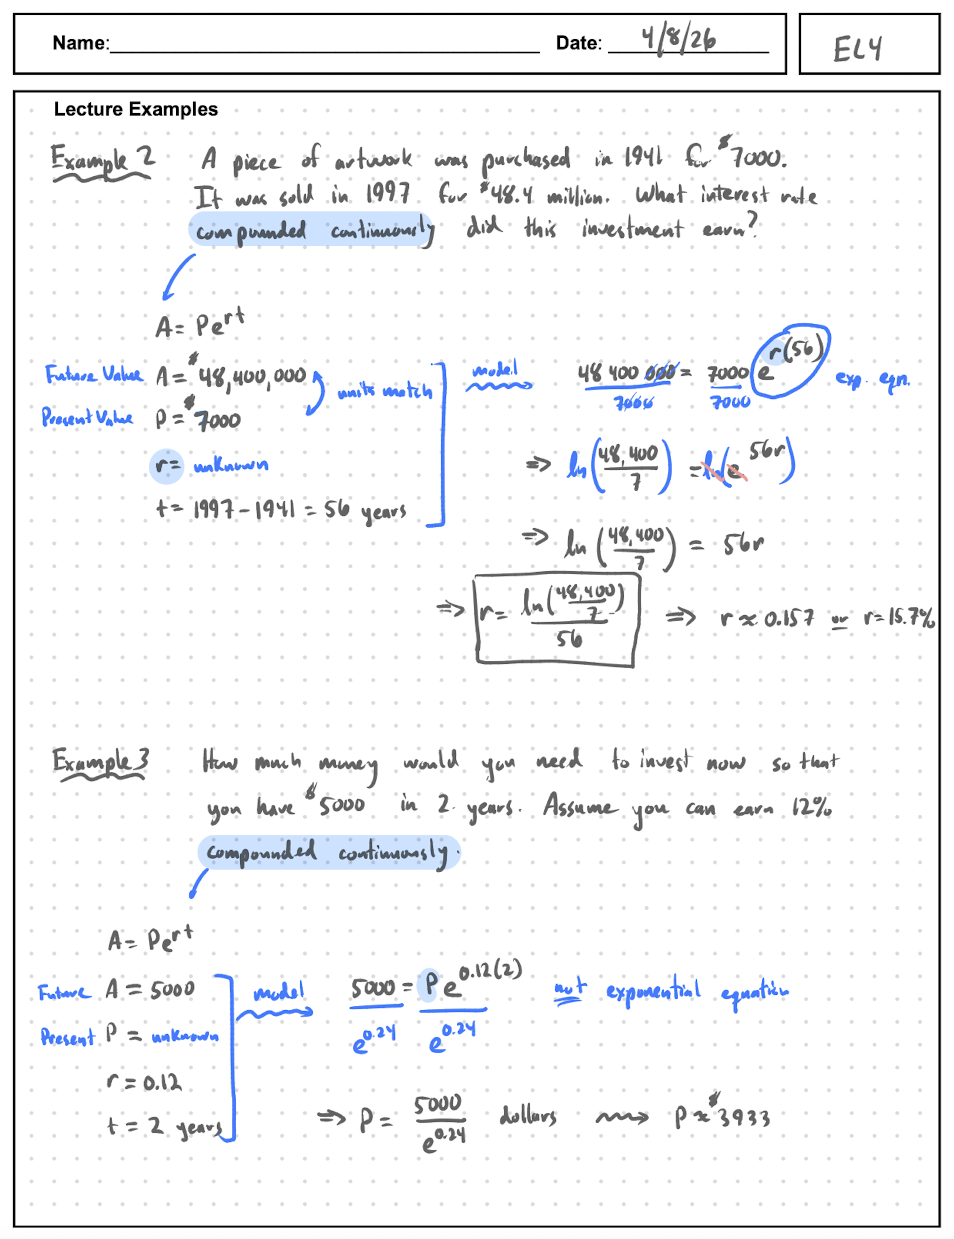 Name: Date: 4/8/26 EL4
Lecture Examples
Example 2 A piece of artwork was purchased in 1941 for $7000.
It was sold in 1997 for $48.4 million. What interest rate
compounded continuously did this investment earn?
A = Pe^{rt}
Future Value A = $48,400,000
Present Value P = $7000
units match
r = unknown
t = 1997 - 1941 = 56 years
model
48 400 000 / 7000 = 7000 / 7000 e^{r(56)} exp. eqn.
⇒ ln(48,400/7) = ln(e^{56r})
⇒ ln(48,400/7) = 56r
⇒ r = ln(48,400/7)/56 ⇒ r ≈ 0.157 or r = 15.7%
Example 3 How much money would you need to invest now so that
you have $5000 in 2 years. Assume you can earn 12%
compounded continuously.
A = Pe^{rt}
Future A = 5000
Present P = unknown
r = 0.12
t = 2 years
model
5000 / e^{0.24} = Pe^{0.12(2)} / e^{0.24} not exponential equation
⇒ P = 5000/e^{0.24} dollars ⟿ P ≈ $3933